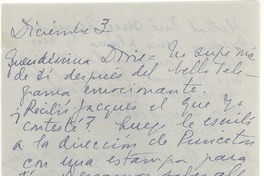 Diciembre 3
Queridísima Doris = No supe más
de ti después del bello tele-
grama emocionante.
¿Recibió Jacques el que yo
contesté? Luego le escribí
a la dirección de Princeton
con una estampa para